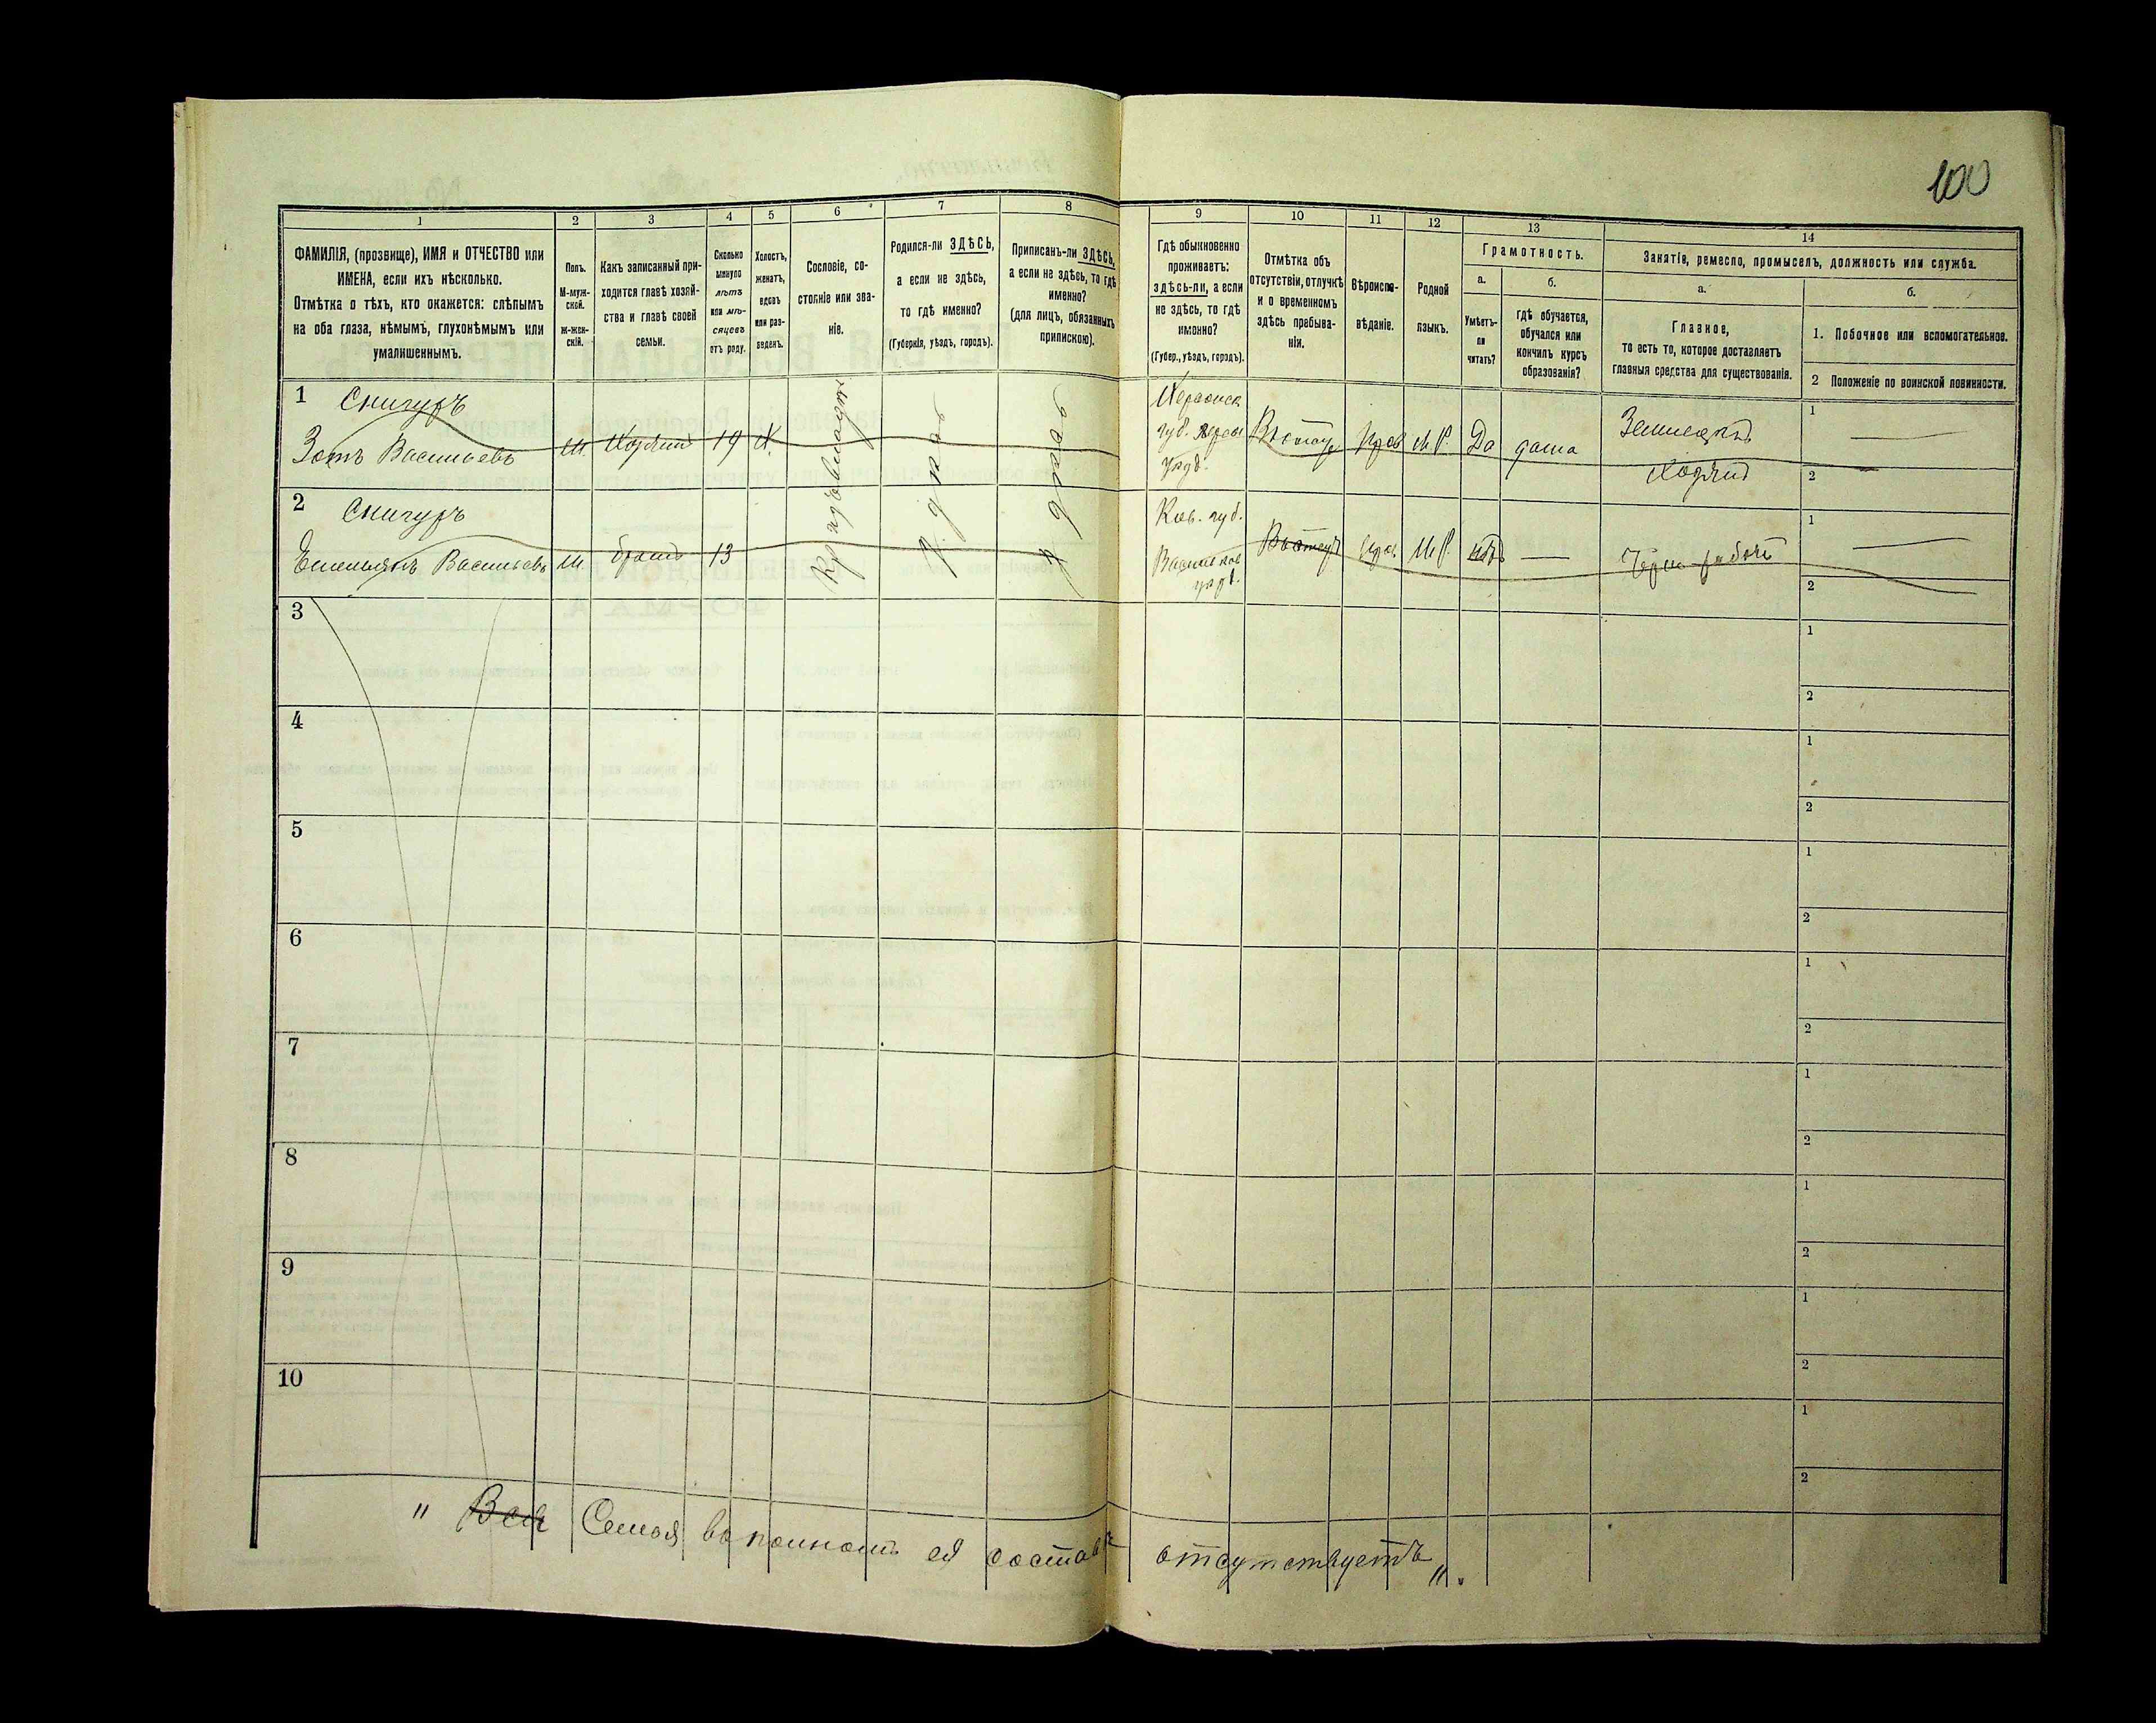 100
1 2 3 4 5 6 7 8 9 10 11 12 13 14
ФАМИЛІЯ, (прозвище), ИМЯ и ОТЧЕСТВО или
ИМЕНА, если ихъ нѣсколько.
Отмѣтка о тѣхъ, кто окажется: слѣпымъ
на оба глаза, нѣмымъ, глухонѣмымъ или
умалишеннымъ.
Полъ.
М-муж-
ской.
Ж-жен-
скій.
Какъ записанный при-
ходится главѣ хозяй-
ства и главѣ своей
семьи.
Сколько
минуло
лѣтъ
или мѣ-
сяцевъ
отъ роду.
Холостъ,
женатъ,
вдовъ
или раз-
веденъ.
Сословіе, со-
стояніе или зва-
ніе.
Родился-ли ЗДѢСЬ,
а если не здѣсь,
то гдѣ именно?
(Губернія, уѣздъ, городъ).
Приписанъ-ли ЗДѢСЬ,
а если не здѣсь, то гдѣ
именно?
(для лицъ, обязанныхъ
припискою).
Гдѣ обыкновенно
проживаетъ:
здѣсь-ли, а если
не здѣсь, то гдѣ
именно?
(Губер., уѣздъ, городъ).
Отмѣтка объ
отсутствіи, отлучкѣ
и о временномъ
здѣсь пребыва-
ніи.
Вѣроиспо-
вѣданіе.
Родной
языкъ.
Грамотность.
а.
Умѣетъ-
ли
читать?
б.
гдѣ обучается,
обучался или
кончилъ курсъ
образованія?
Занятіе, ремесло, промыселъ, должность или служба.
а.
Главное,
то есть то, которое доставляетъ
главныя средства для существованія.
б.
1. Побочное или вспомогательное.
2 Положеніе по воинской повинности.
1 Снигуръ
Зотъ Васильевъ м. 19 Х.
Херсонск
губ.
уѣзд.
М.Р. Да дома
Хозяинъ
1
2
2 Снигуръ
Васильевъ м. братъ 13
Кіев. губ.
Васильков
уѣзд.
М.Р. нѣтъ
1
2
3
1
2
4
1
2
5
1
2
6
1
2
7
1
2
8
1
2
9
1
2
10
1
2
" Вся Семья въ полномъ ея составѣ отсутствуетъ".